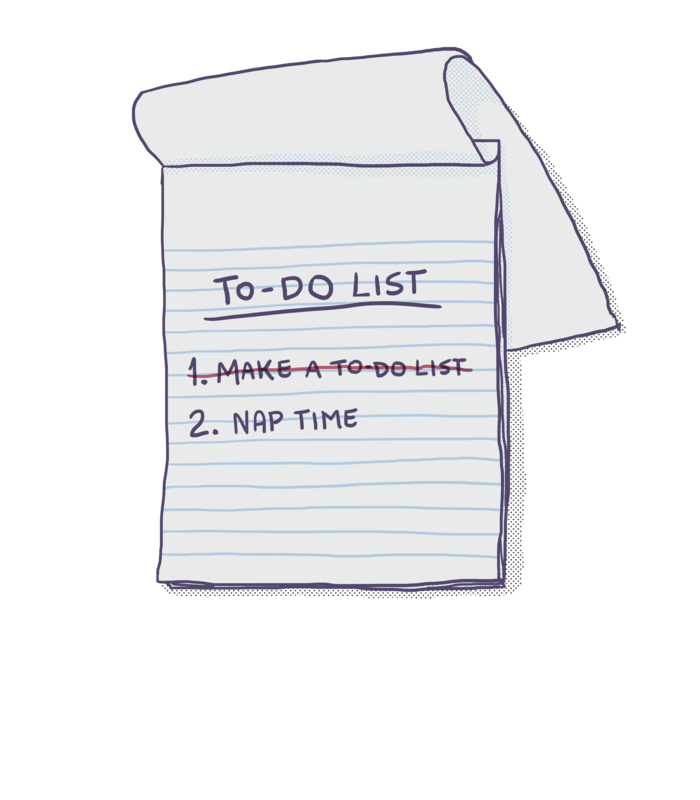 TO-DO LIST
1. MAKE A TO-DO LIST
2. NAP TIME